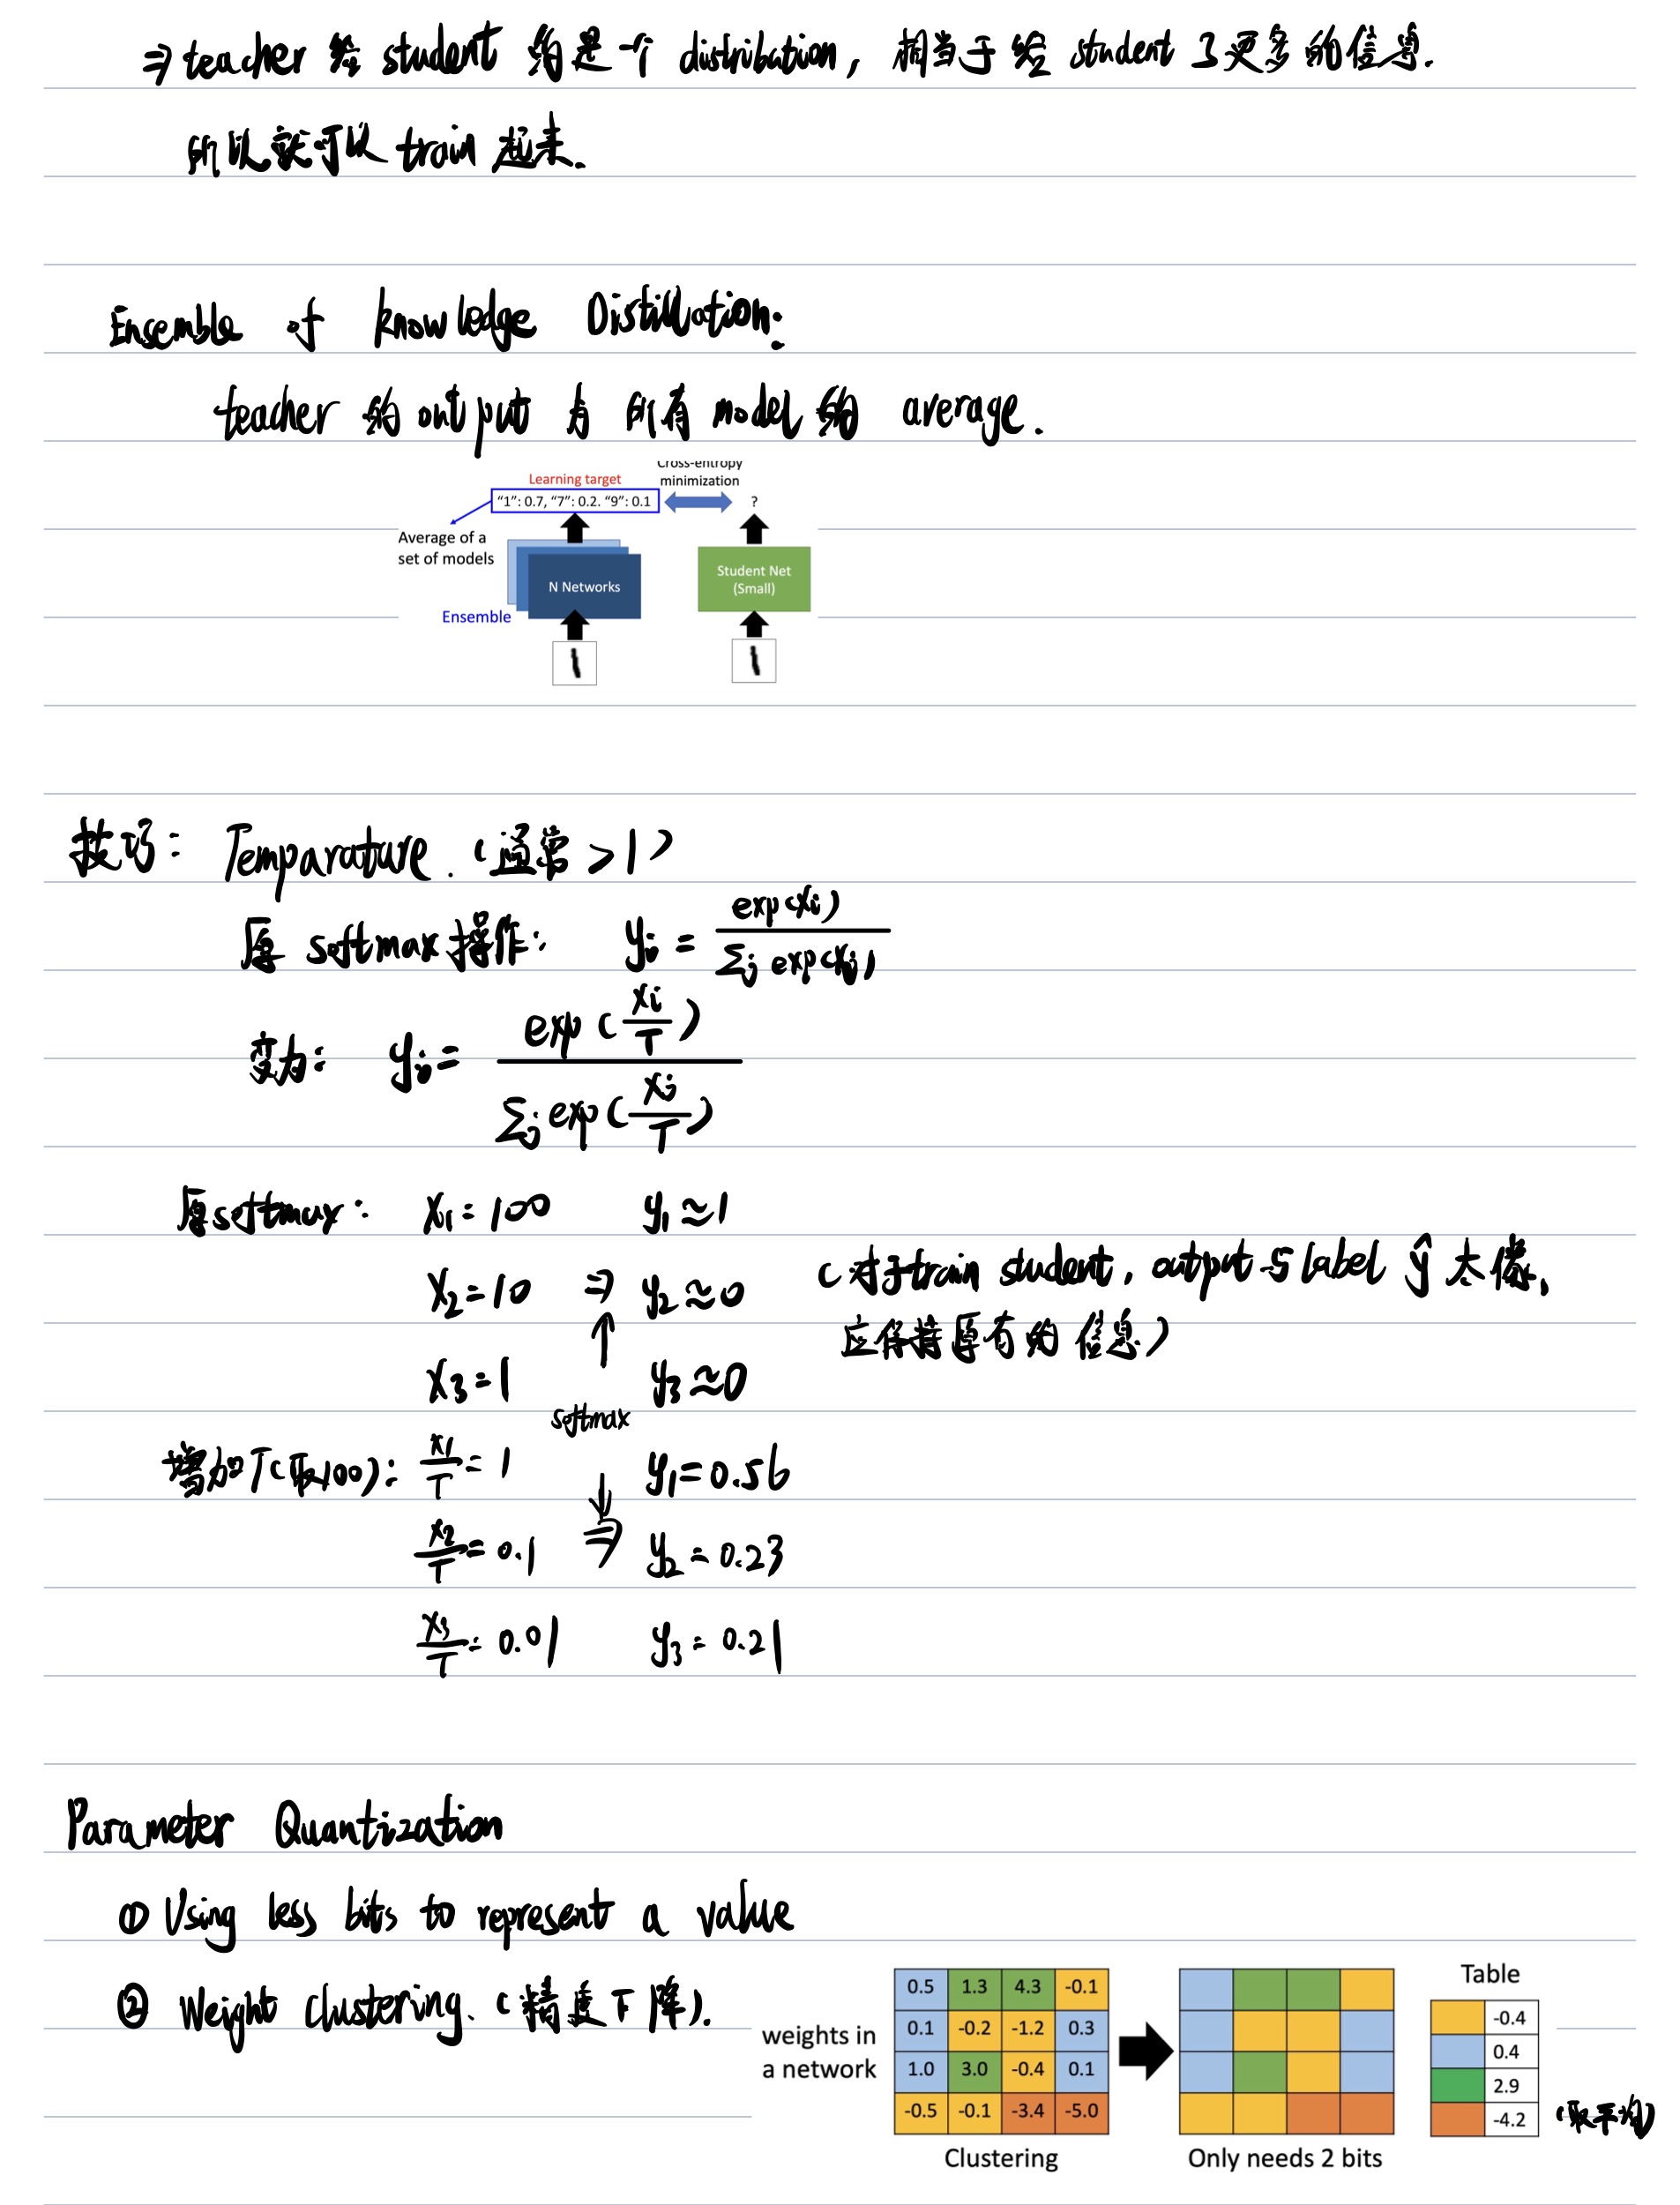 ⇒ teacher 给 student 的是一个 distribution, 相当于给 student 了更多的信息.
所以就可以 train 起来.
Ensemble of knowledge Distillation:
teacher 的 output 为 所有 model 的 average.
Cross-entropy
minimization
Learning target
"1": 0.7, "7": 0.2. "9": 0.1
?
Average of a
set of models
N Networks
Student Net
(Small)
Ensemble
技巧: Temparature. (通常 > 1)
原 softmax 操作: yi = exp(xi) / Σj exp(xj)
变为: yi = exp(xi/T) / Σj exp(xj/T)
原 softmax: x1 = 100 y1 ≈ 1
x2 = 10 ⇒ y2 ≈ 0 (对于 train student, output 与 label ŷ 太像,
↑ 应保持原有的信息)
x3 = 1 y3 ≈ 0
softmax
增加 T (取100): x1/T = 1 y1 = 0.56
↓
x2/T = 0.1 ⇒ y2 = 0.23
x3/T = 0.01 y3 = 0.21
Parameter Quantization
① Using less bits to represent a value
② Weight clustering. (精度下降).
weights in
a network
0.5 1.3 4.3 -0.1
0.1 -0.2 -1.2 0.3
1.0 3.0 -0.4 0.1
-0.5 -0.1 -3.4 -5.0
Clustering
Only needs 2 bits
Table
-0.4
0.4
2.9
-4.2
(取平均)